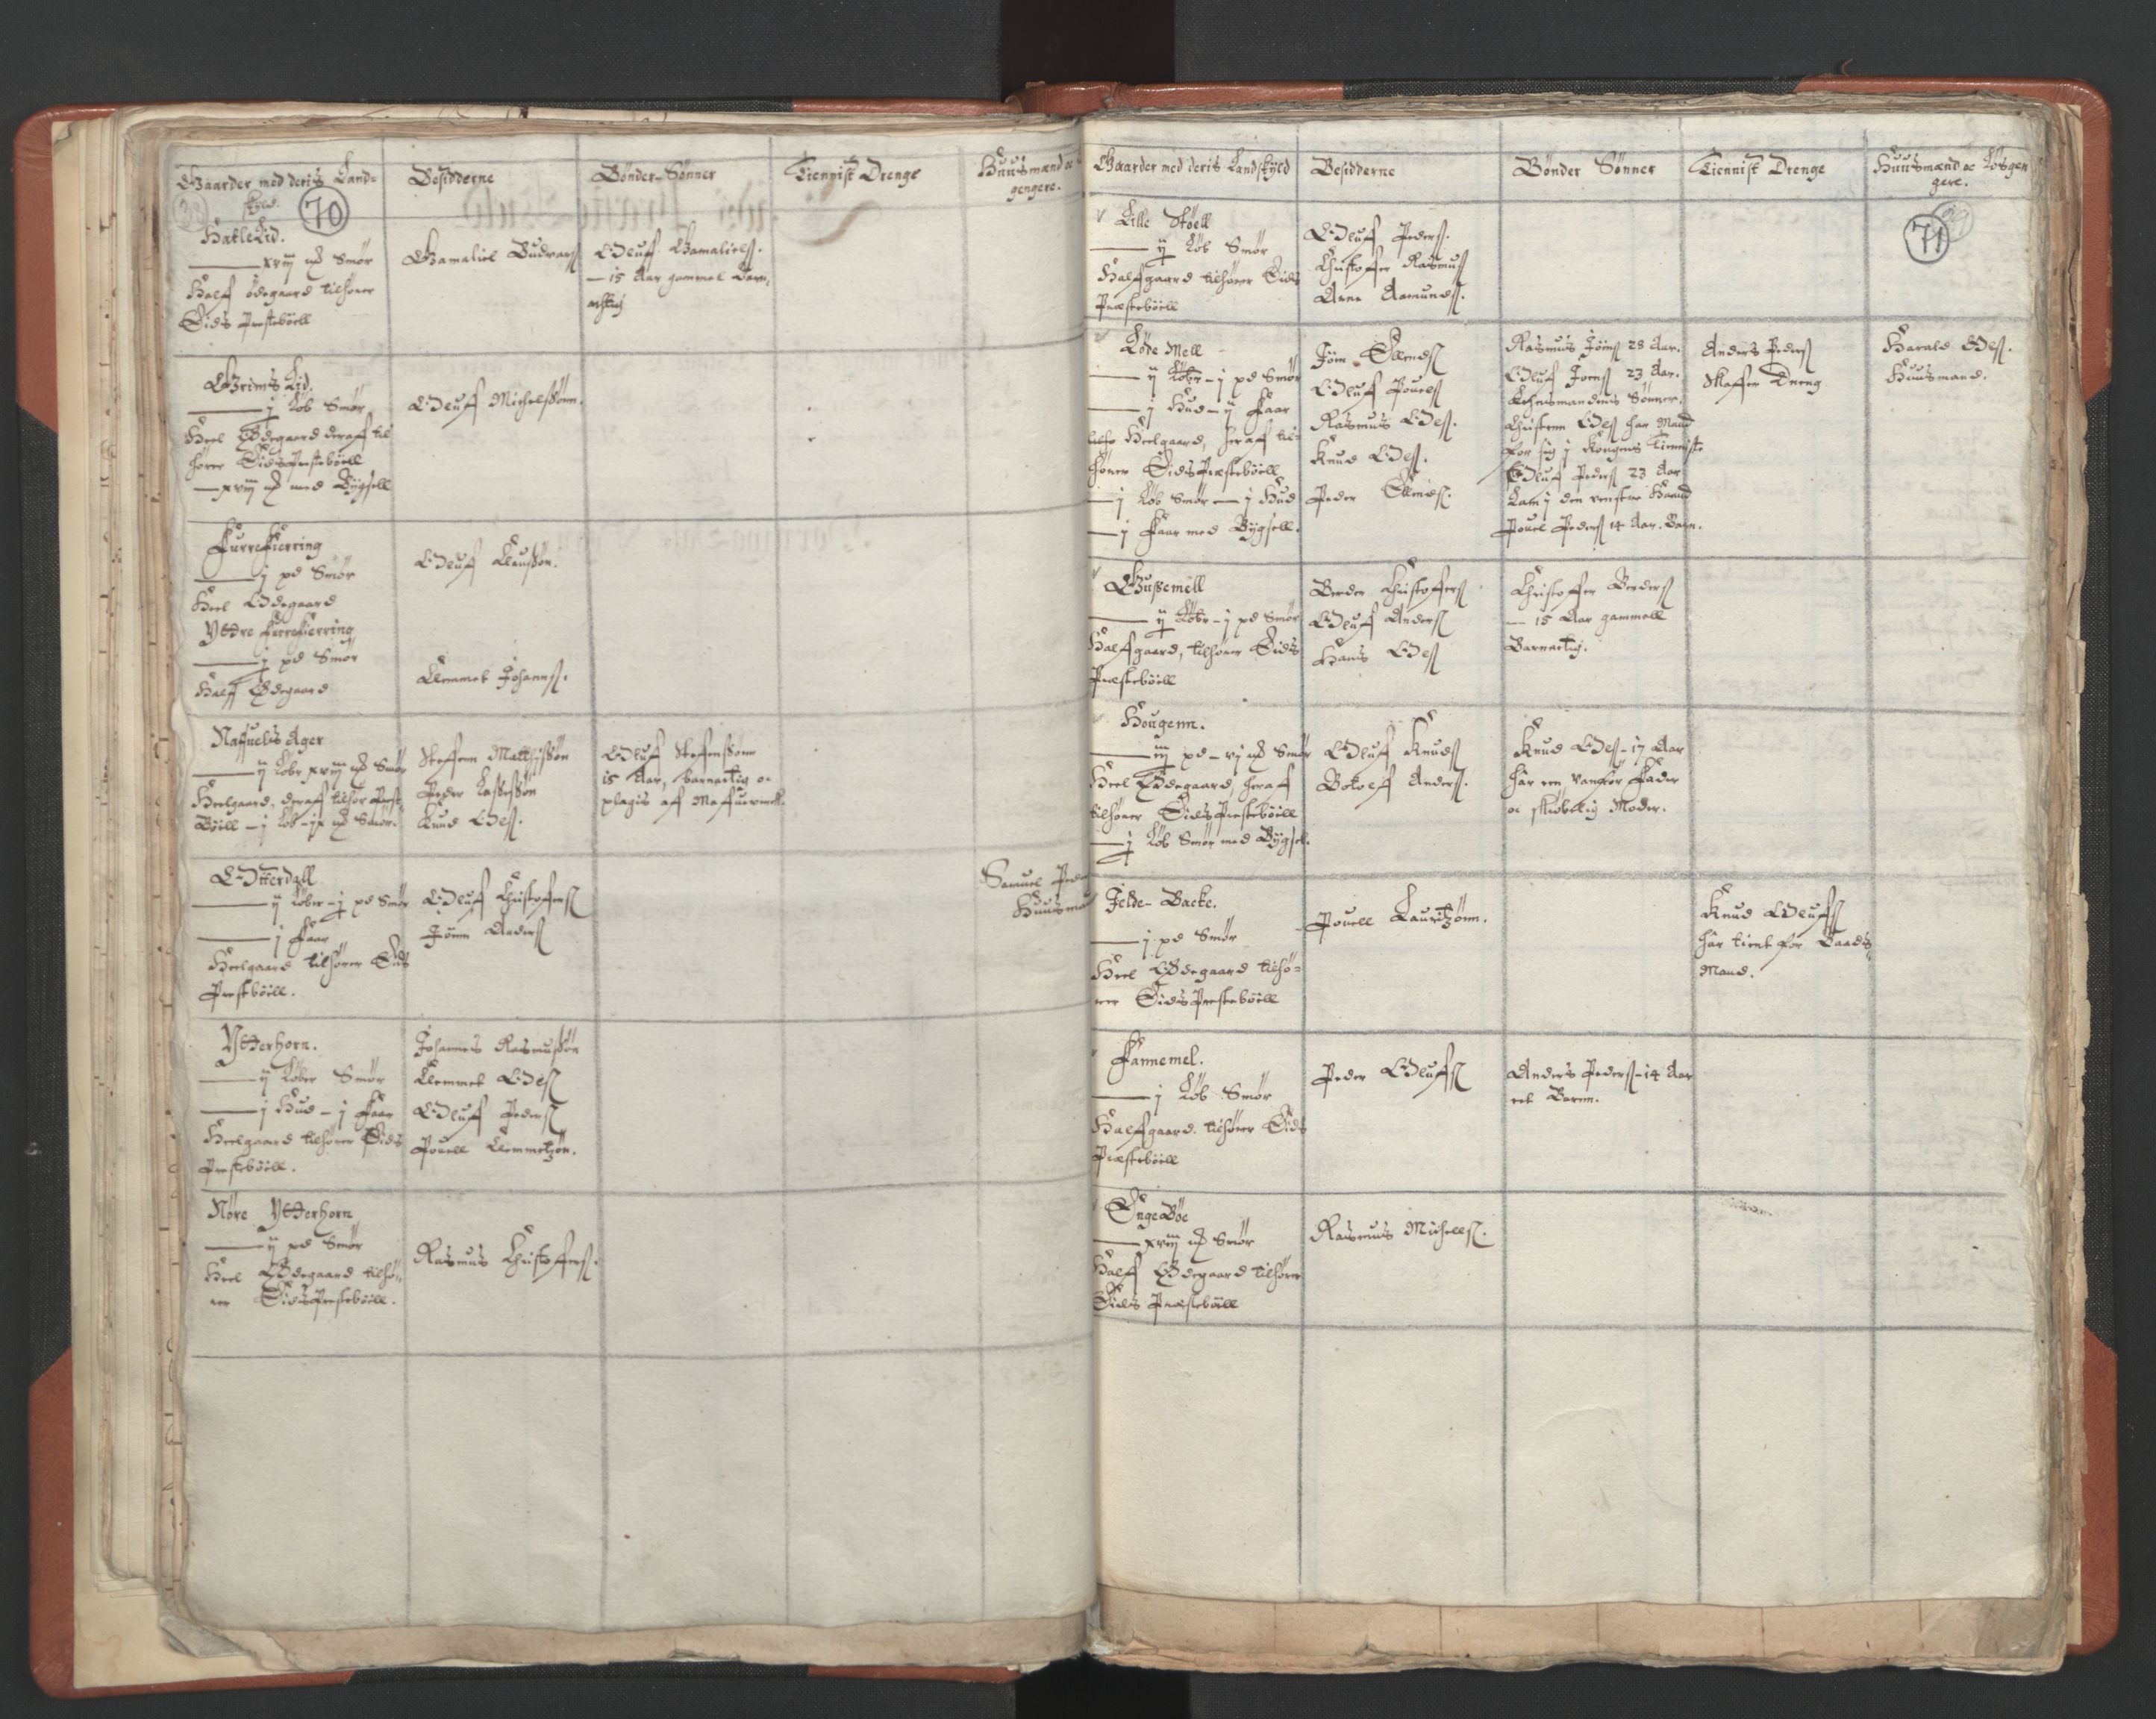 Gaarder med deris Land=
skyld.
Besidderne
Bønder-Sønner
Tiennist Drenge
Huusmænd oc
gengere.
70
HatleLid.
— xviij mk Smør
Half ødegaard tilhører
Eids Prestebøell
Gamaliel Gudvarß
Oluf Gamalielß.
— 15 Aar gammel Barn,
actig
Grims Lid.
— j Løb Smør
Heel Ødegaard deraff til
hører Eids Prestebøell
— xviij mk med Bygsell
Oluff Michelsßønn.
Furrefierring
— j pd Smør
Heel Ødegaard
Oluf Clausßøn.
Yttre Furrefierring
— j pd Smør
Half Ødegaard
Clemmet Johannß.
Naffuelis Ager
— ij Løber xviij mk Smør
Heelgaard. deraff tilhør Prest
Bøill — j Løb - ix mk Smør.
Steffenn Matthißøn
Peder Laßeßøn
Knud Olß.
Oluf Steffensßønn
15 Aar, barnactig oc
plagis af
Otterdall
— ij Løber - j pd Smør
— j Faar
Heelgaard tilhører Eids
Prestbøell.
Oluf Christoffersß
Jonn Andersß
Samuel Peder
Huusman
Ytterhorn.
— ij Løber Smør
— j Hud - j Faar
Heelgaard tilhører Eids
Prestebøell.
Johannes Rasmusßøn
Clemmet Olß
Oluff Pedersß
Povell Clemmetzøn.
Nøre Ytterhorn
— ij pd Smør
Heel Ødegaard tilhø=
rer Eids Prestebøell.
Rasmus Christoffersß.
Gaarder med deris Landskyld
Besidderne
Bønder Sønner
Tiennist Drenge
Huusmænd oc Løsgen
gere.
71
Lille Støell
— ij Løb Smør
Halfgaard tilhører Eids
Præstebøell
Oluf Pedersß.
Christoffer Rasmusß
Arne Aamundsß.
Løde Mell
— ij Løber - j pd Smør
— j Hud - ij Faar
Heelgaard, heraff til=
hører Eids Præstebøell
— j Løb Smør — j Hud
— j Faar med Bygsell.
Jonn Ellendsß
Oluf Povelsß
Rasmus Olß.
Knud Olß.
Peder Ellendsß.
Rasmus Jonsß 28 Aar.
Oluf Jonsß 23 Aar.
Lehnsmandens Sønner.
Christenn Olß har Mand
for sig j Kongens Tienniste
Oluf Pedersß 23 Aar
Lam j den venstre Haand
Povel Pedersß 14 Aar. Barn.
Anders Pedersß
Skaffer Dreng
Harald Olß.
Huusmand.
Gußemell
— ij Løber - j pd Smør
Halfgaard, tilhører Eids
Præstebøell
Verder Christoffersß
Oluf Andersß
Hans Olß
Christoffer Verdersß
— 15 Aar gammell
Barnactig.
Hougenn.
— iij pd - vj mk Smør
Heel Ødegaard, heraf
tilhører Eids Prestebøell
— j Løb Smør med Bygsel.
Oluff Knudsß
Botolf Andersß.
Knud Olß - 17 Aar
har een vanfør Fader
oc skrøbelig Moder.
Jelde-Backe.
— j pd Smør
Heel Ødegaard tilhø=
rer Eids Prestebøell
Povell Lauritzønn.
Knud Oluffsß
har tient for Baads
Mand.
Fannemel.
— j Løb Smør
Halfgaard. tilhører Eids
Præstebøell
Peder Olufsß
Anders Pedersß - 14 Aar
eet Barnn.
EngeBøe
— xviij mk Smør
Half Ødegaard tilhører
Eids Præstebøell
Rasmus Michelsß.